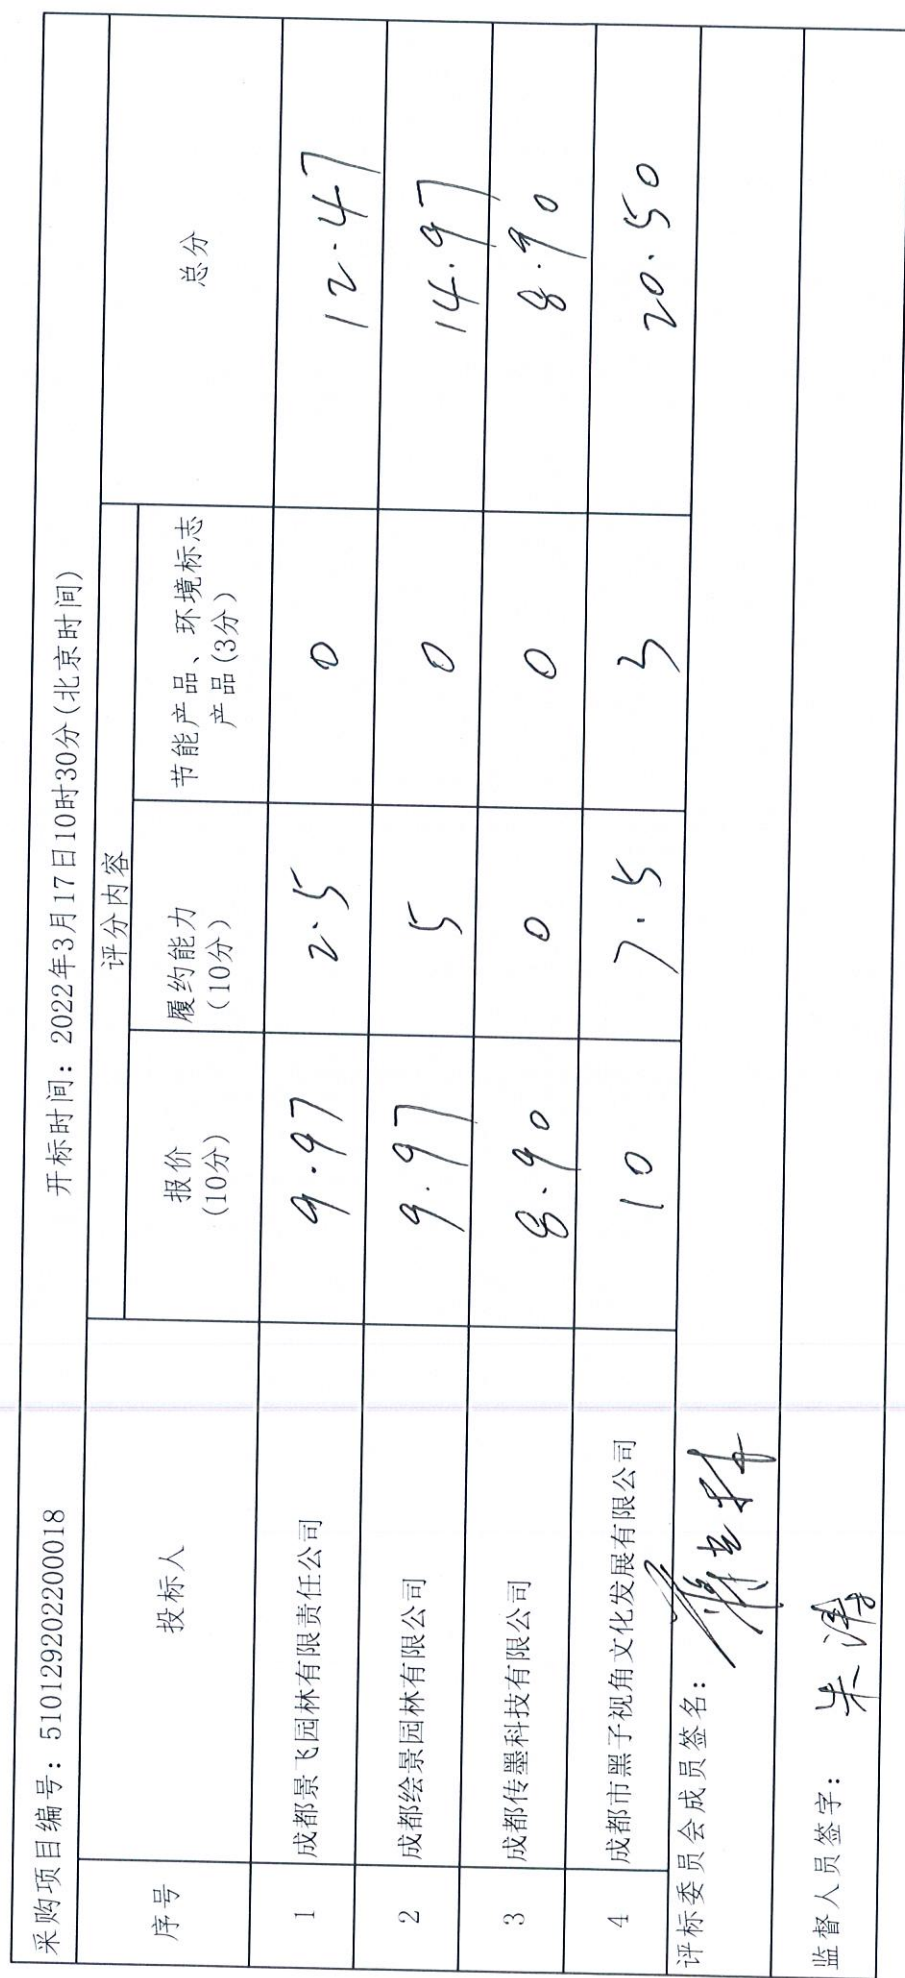 采购项目编号：5101292022000​18 开标时间：2022年3月17日10时30分(北京时间)
序号 投标人 评分内容 总分
报价 履约能力 节能产品、环境标志
(10分) （10分） 产品(3分）
1 成都景飞园林有限责任公司 9.97 2.5 0 12.47
2 成都绘景园林有限公司 9.97 5 0 14.97
3 成都传墨科技有限公司 8.90 0 0 8.90
4 成都市黑子视角文化发展有限公司 10 7.5 3 20.50
评标委员会成员签名：
监督人员签字：